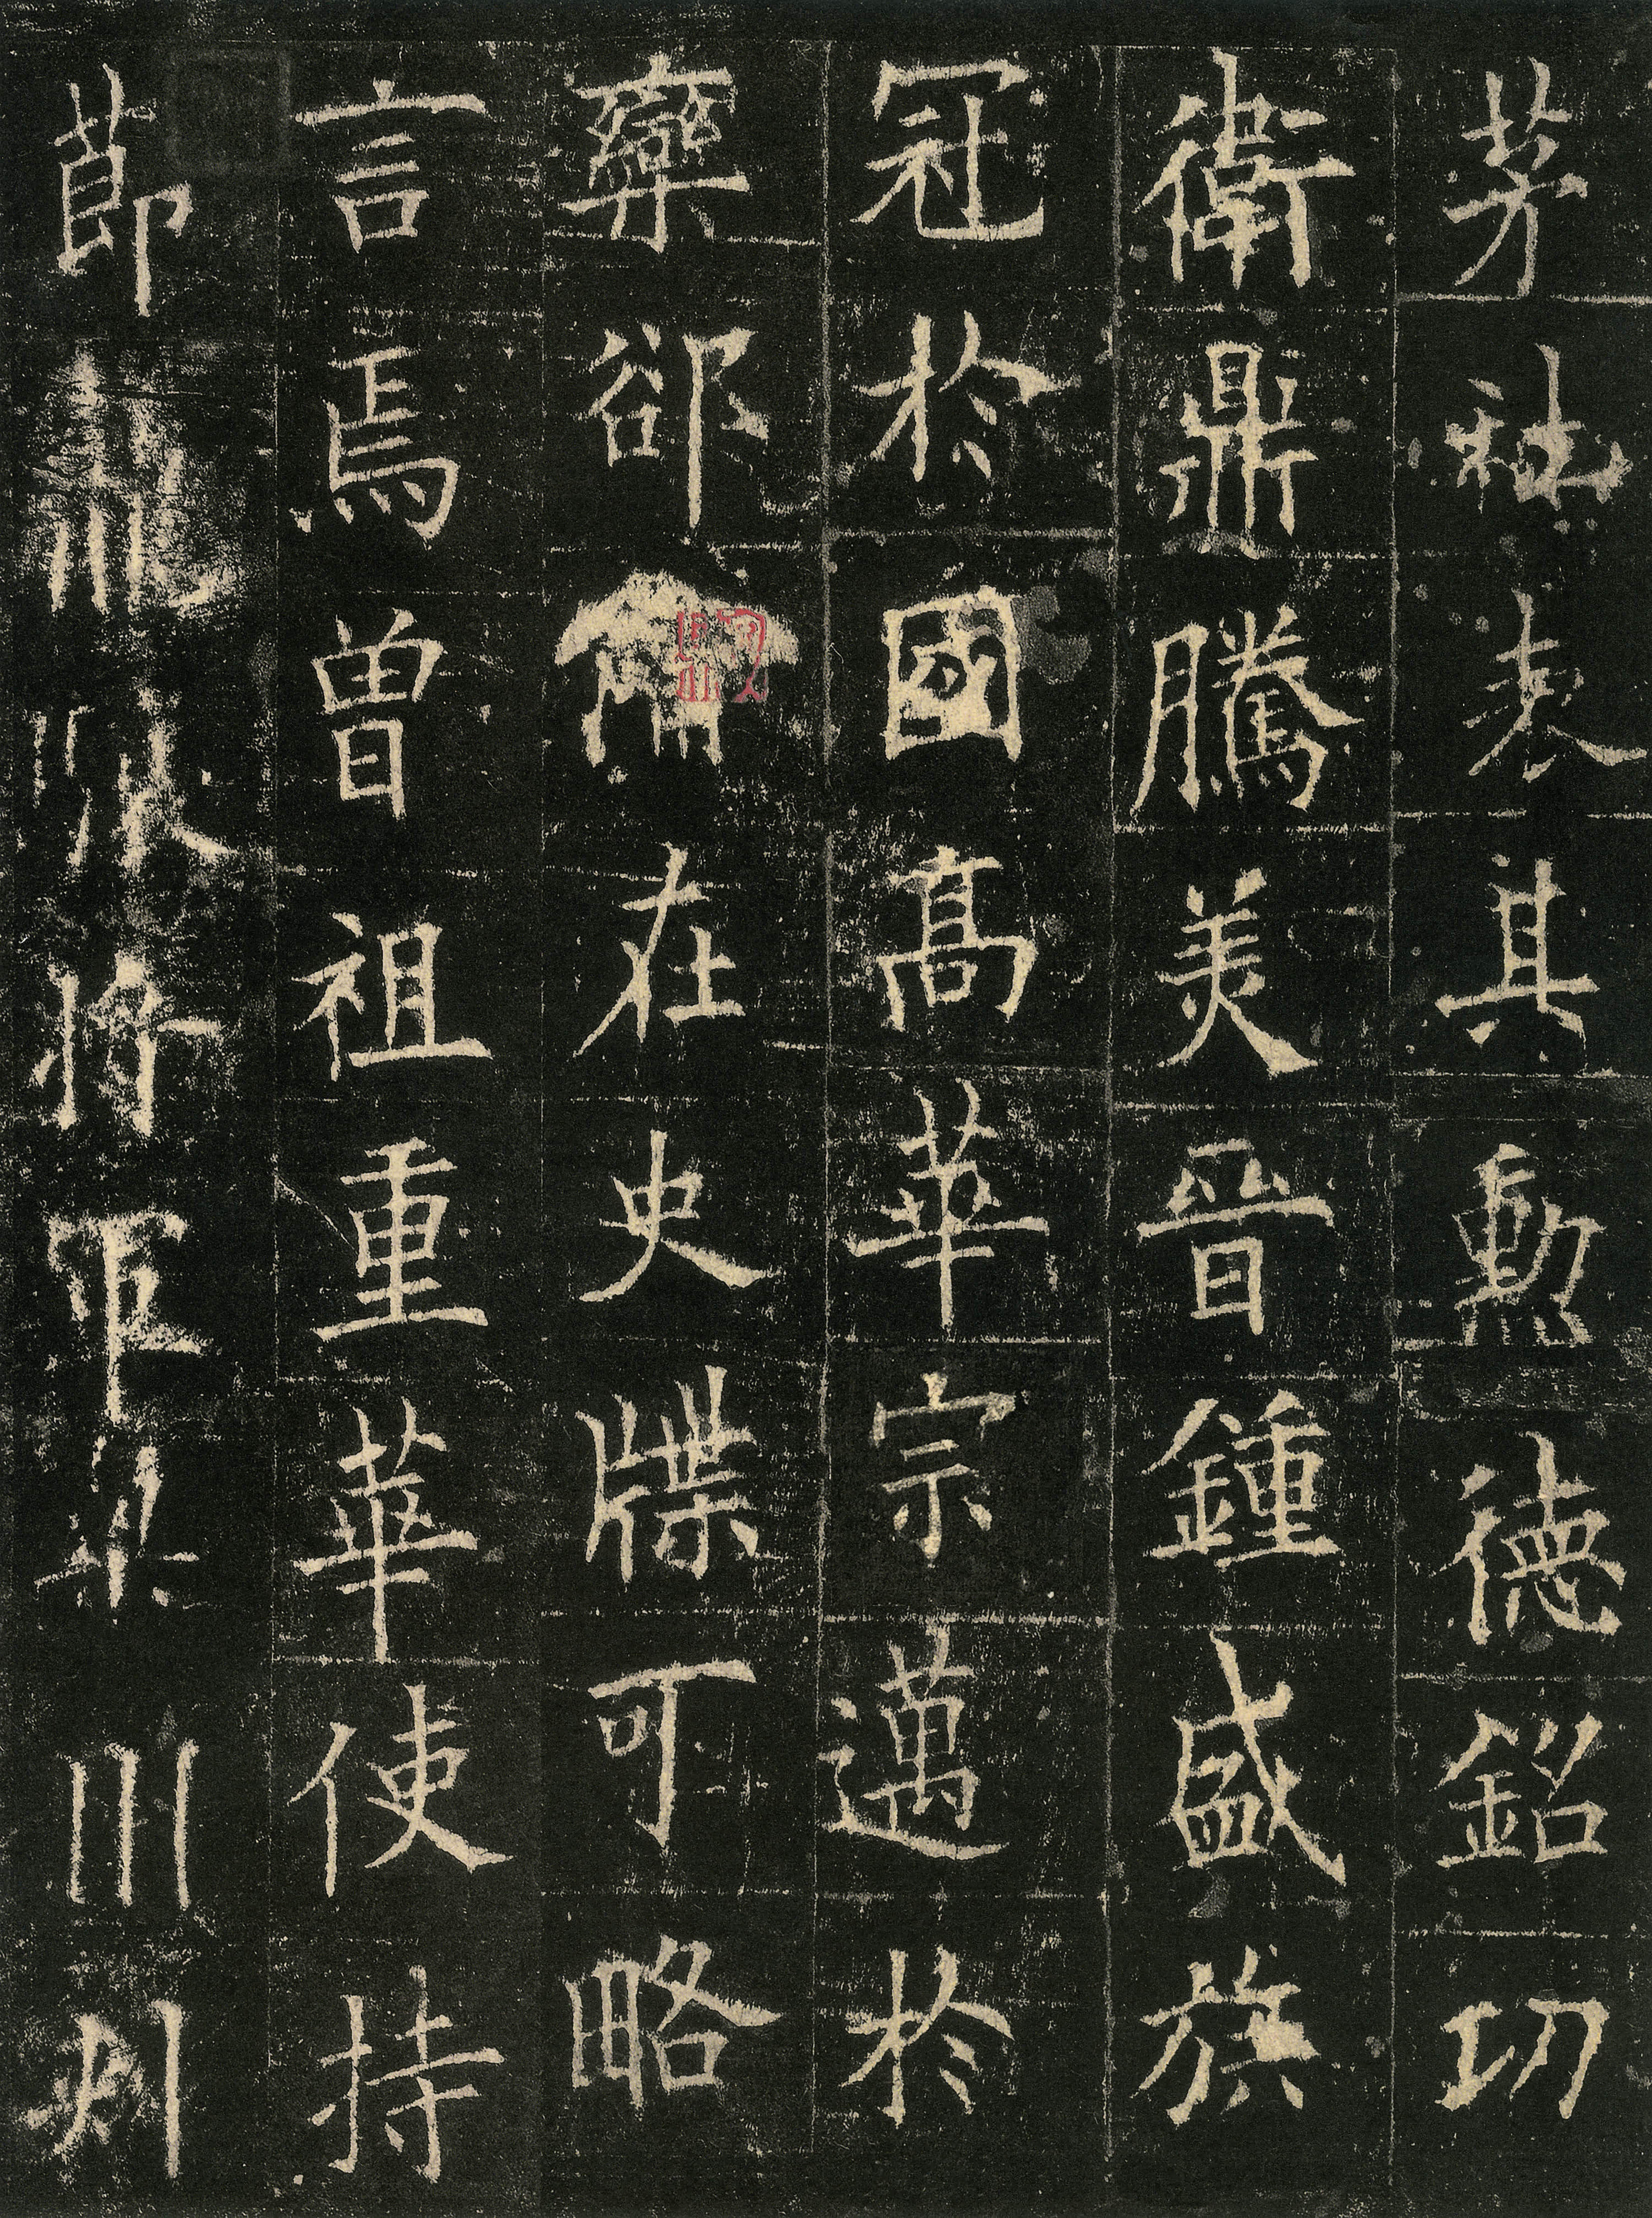 茅社表其勲德銘功
衛鼎騰美晋鍾盛族
冠於國高華宗邁於
欒郤在史牒可略
言焉曾祖重華使持
節龍將軍梁州刺